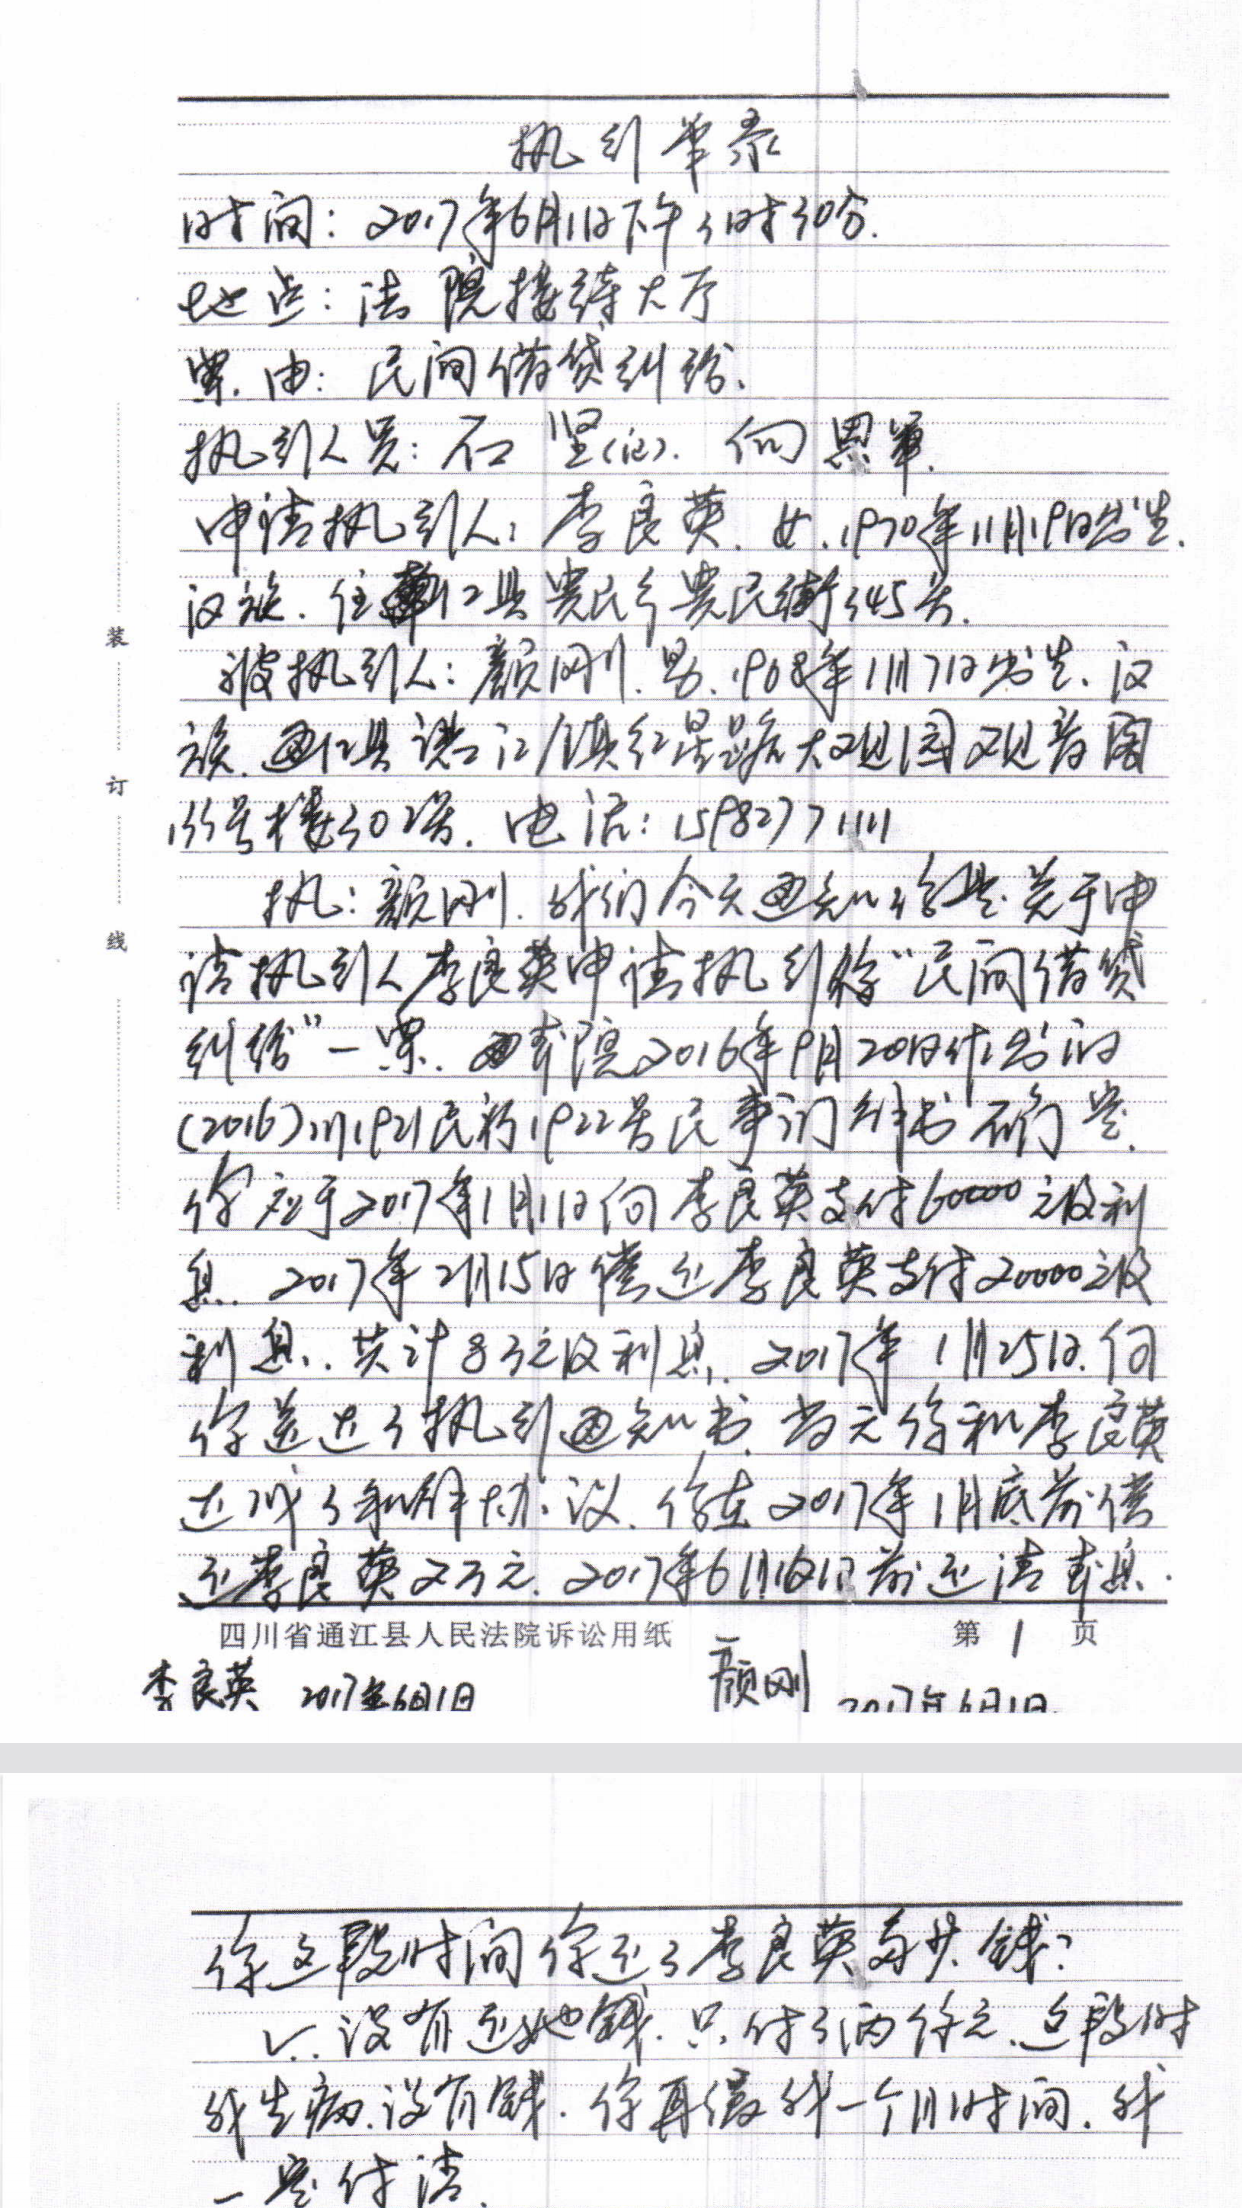 执行笔录
时间：2017年6月1日下午3时30分.
地点：法院接待大厅
案.由：民间借贷纠纷.
执行人员：石坚(记). 何思军.
申请执行人：李良英.女.1970年11月19日出生.
汉族.住 江县农民乡农民街345号.
被执行人：颜刚.男.1968年1月7日出生.汉
族.通江县诺江镇红星路大观园观音阁
155号楼302号.电话：15982771111
执：颜刚.我们今天通知你是关于申
请执行人李良英申请执行你“民间借贷
纠纷”一案.通本院2016年9月20日作出的
(2016)川1921民初1922号民事调解书确定.
你应于2017年1月1日向李良英支付60000元及利
息.2017年2月15日偿还李良英支付20000元及
利息.共计8万元及利息.2017年1月25日.向
你送达了执行通知书.当天你和李良英
达成了和解协议.你在2017年1月底前偿
还李良英2万元.2017年6月1日前还清本息.
装
订
线
四川省通江县人民法院诉讼用纸 第1页
李良英 2017年6月1日 颜刚 2017年6月1日
你这段时间你还了李良英多少钱?
没有还她钱.只付了两 元.这段时
我生病.没有钱.你再缓我一个月时间.我
一定付清.